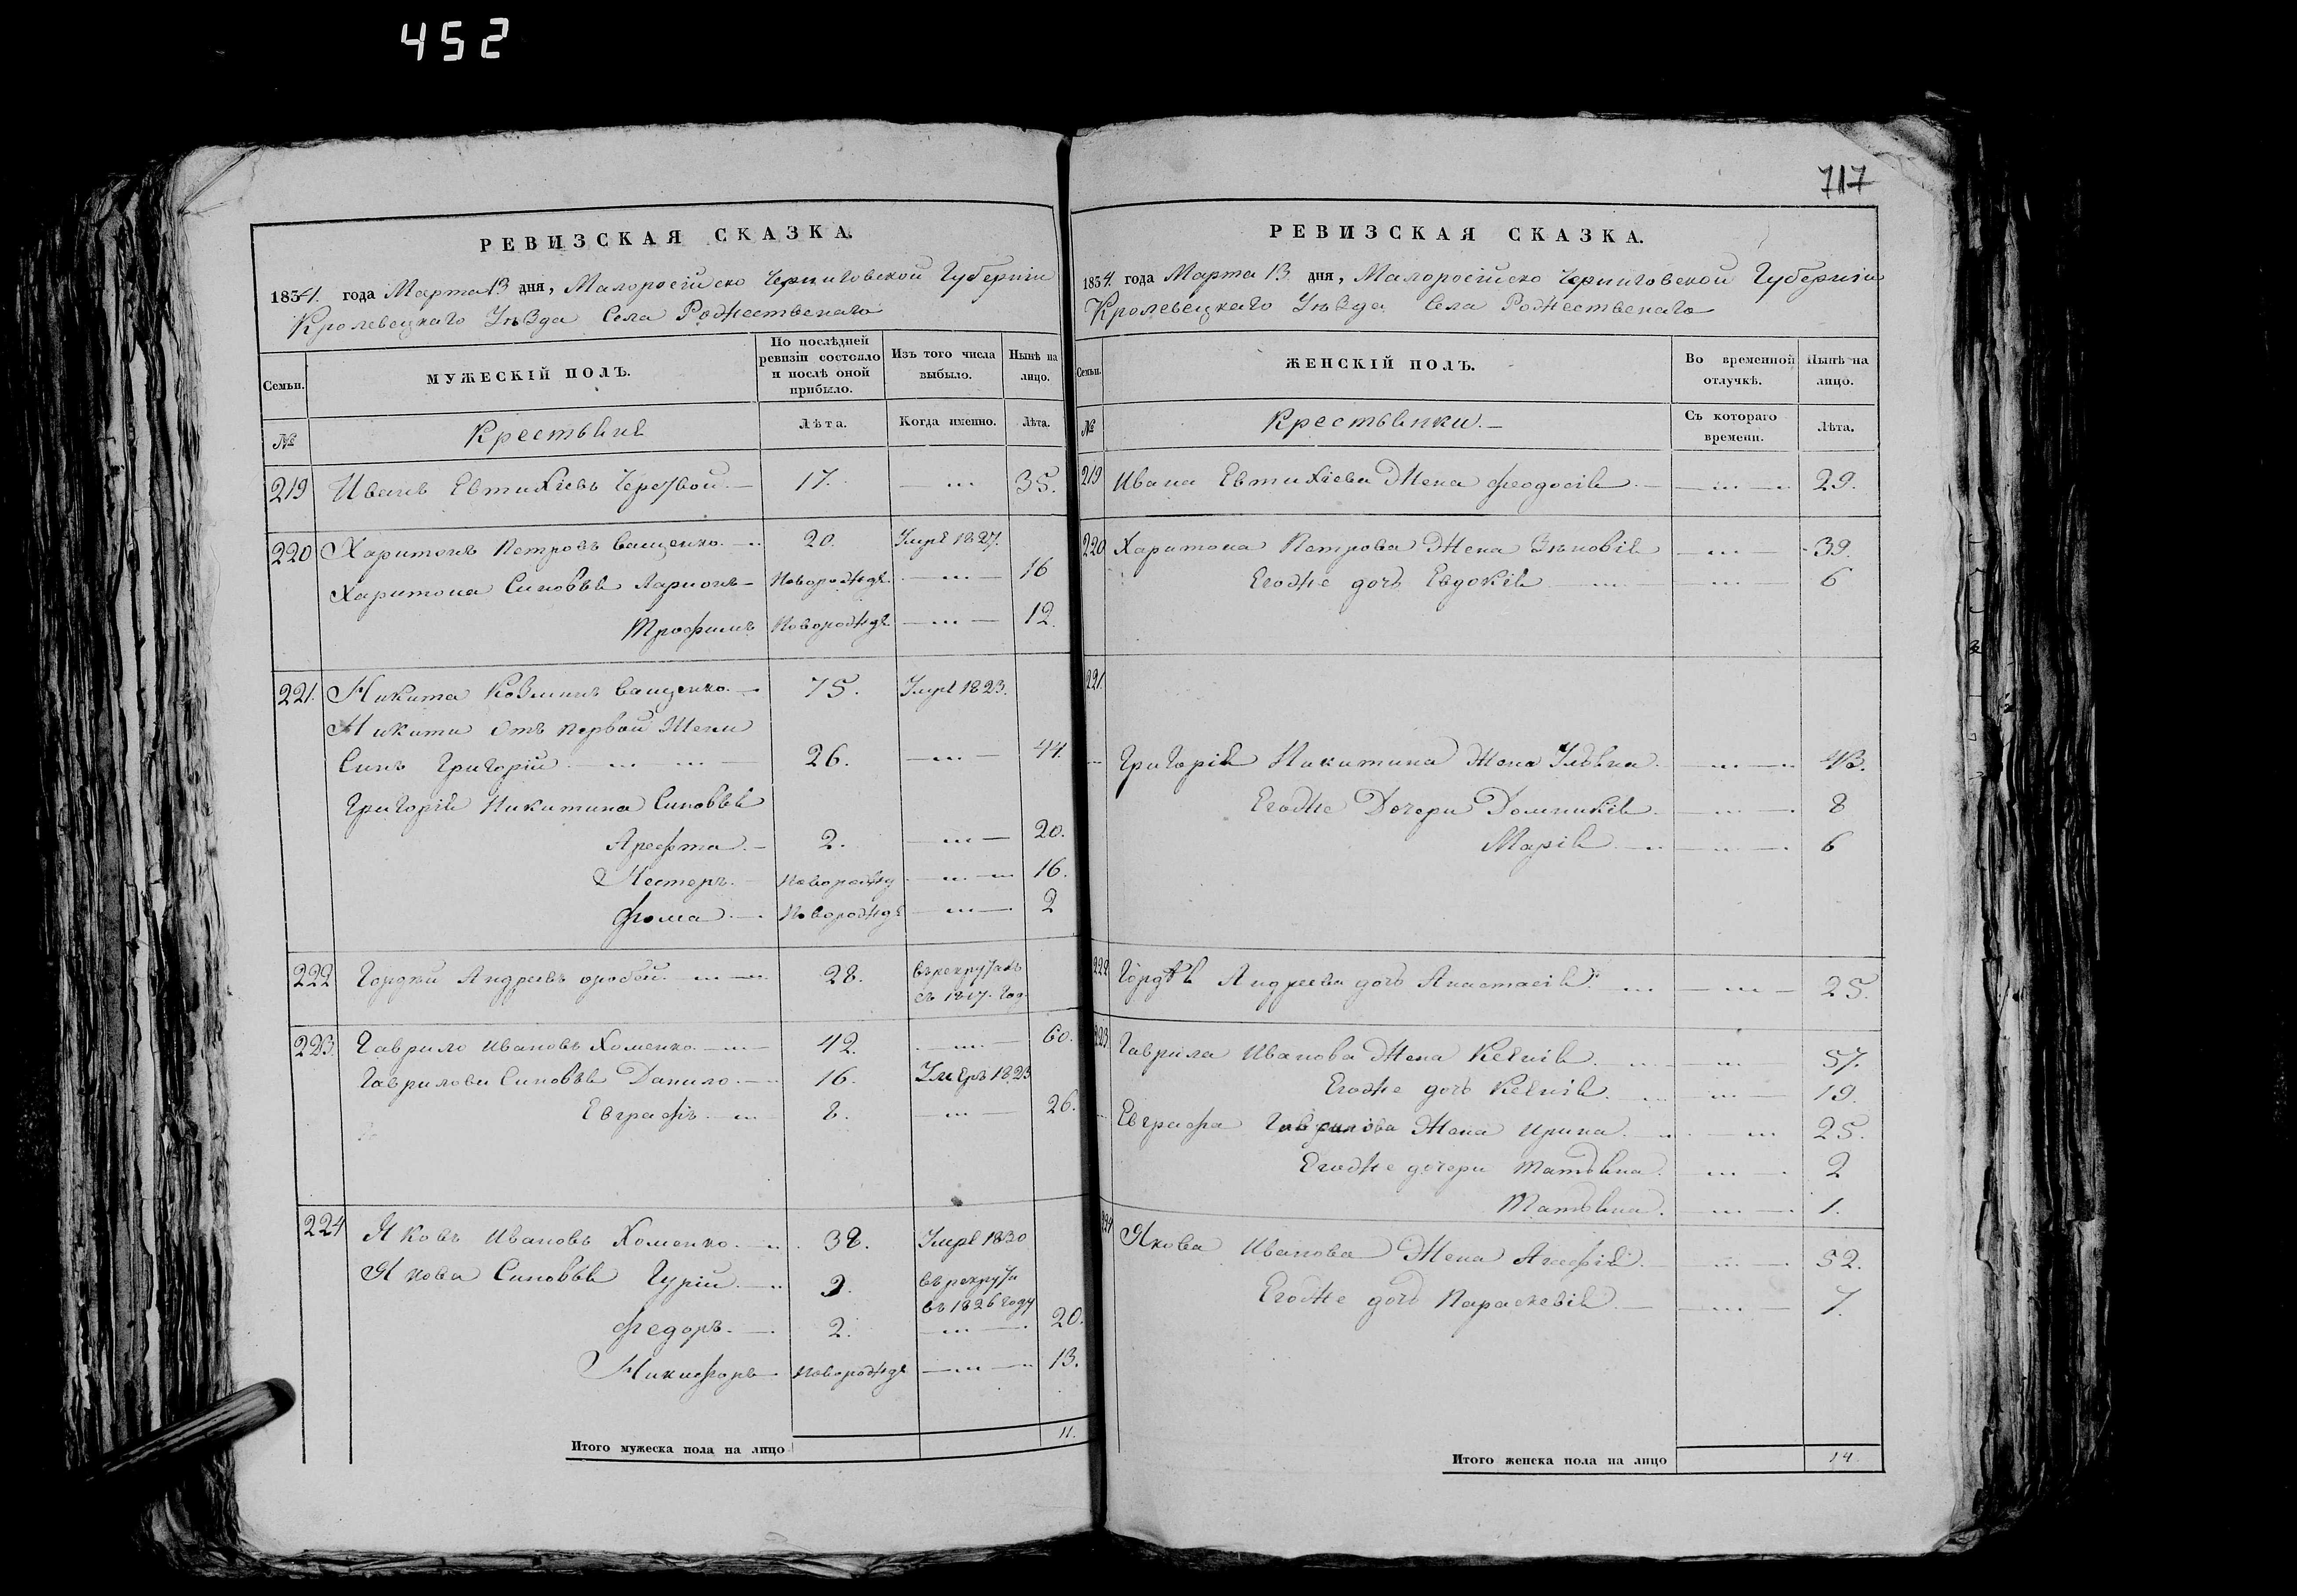 452
717
РЕВИЗСКАЯ СКАЗКА.
1834. года Марта 13 дня, Малоросійско Черниговской Губерніи
Кролевецкаго Уѣзда Села Рождественаго
Семьи. МУЖЕСКІЙ ПОЛЪ. По послѣдней ревизіи состояло и послѣ оной прибыло. Изъ того числа выбыло. Нынѣ на лицо.
№ Крестьяне Лѣта. Когда именно. Лѣта.
219 Иванъ Евтихіевъ 17. 35.
220 Харитонъ Петровъ Ващенко 20. Умре 1827.
Харитона Синовья Ларионъ Новорожде. 16
Трофимъ Новорожде. 12.
221. Никита Козминъ Ващенко 75. Умре 1823.
Никити отъ первой Жени
Синъ Григорій 26. 44.
Григорія Никитина Синовья
Арефта 2. 20.
Нестеръ Новорожд 16.
Фома Новорожде 2
222 Гордѣй Андреевъ 28. въ рекрутахъ
съ 1817. год
223. Гаврило Ивановъ Хоменко 42. 60.
Гаврилови Синовья Данило 16. Умерѣ 1823
Евграфъ 8. 26.
224 Яковъ Ивановъ Хоменко 38. Умре 1830
Якова Синовья Гурій 3. въ рекрути
въ 1826 году
Федоръ 2. 20.
Никифоръ Новорожде 13.
Итого мужеска пола на лицо 11.
РЕВИЗСКАЯ СКАЗКА.
1834. года Марта 13 дня, Малоросійско Черниговской Губерніи
Кролевецкаго Уѣзда Села Рождественаго
Семьи. ЖЕНСКІЙ ПОЛЪ. Во временной отлучкѣ. Нынѣ на лицо.
№ Крестьянки Съ котораго времени. Лѣта.
219 Ивана Евтихіева Жена Феодосія 29.
220 Харитона Петрова Жена Зѣновія 39.
Егожъ дочъ Евдокія 6
221
Григорія Никитина Жена Ульяна 43.
Егоже Дочери Домникія 8
Марія 6
222 Гордѣя Андреева дочъ Анастасія 25.
223 Гаврила Иванова Жена Ксенія 57.
Егоже дочъ Ксенія 19.
Евграфа Гаврилова Жена Ирина 25.
Егоже дочери Татьяна 2
Татьяна 1.
224 Якова Иванова Жена Агафія 52.
Егоже дочъ Параскевія 7.
Итого женска пола на лицо 14